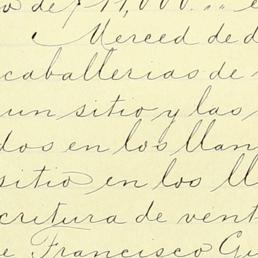 de $ 11,000.
Merced de d
caballerias de
un sitio y las
dos en los llan
sitio en los ll
critura de vent
e Francisco Gu